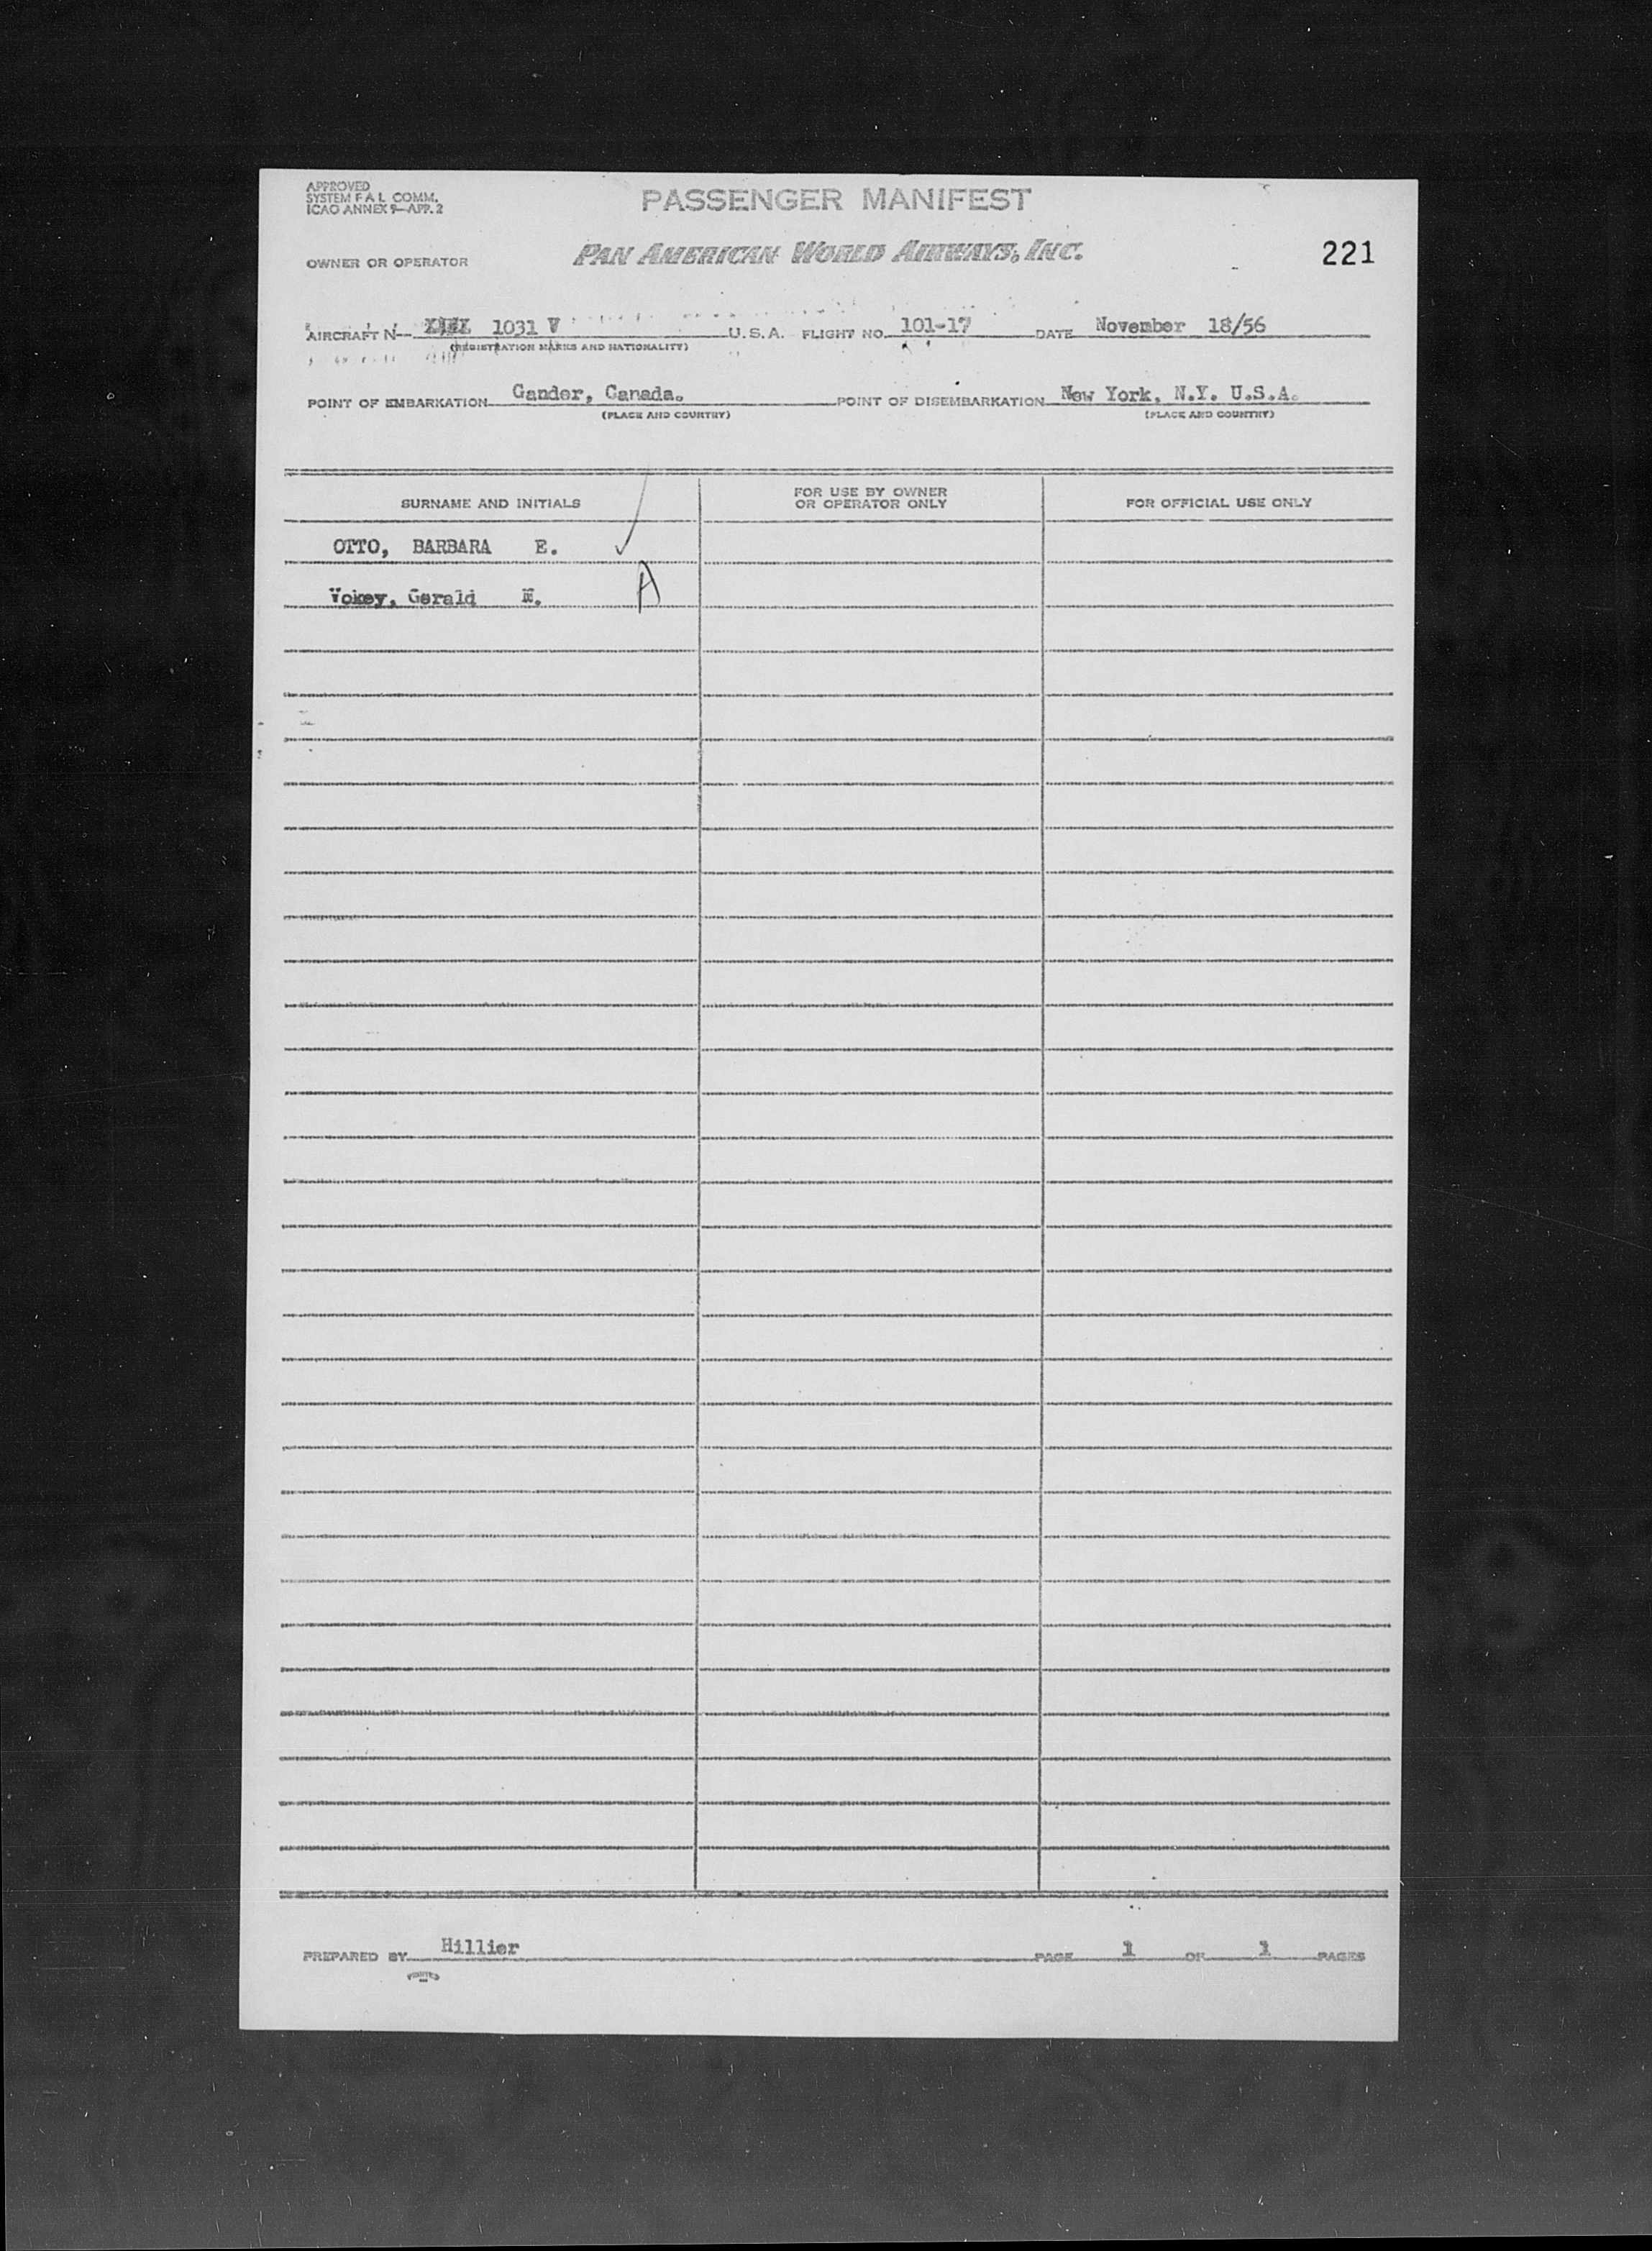 APPROVED
SYSTEM F A L COMM.
ICAO ANNEX 9—APP. 2
PASSENGER MANIFEST
OWNER OR OPERATOR
PAN AMERICAN WORLD AIRWAYS, INC.
221
AIRCRAFT N— 1031 V U.S.A. FLIGHT NO. 101-17 DATE November 18/56
(REGISTRATION MARKS AND NATIONALITY)
POINT OF EMBARKATION Gander, Canada. POINT OF DISEMBARKATION New York, N.Y. U.S.A.
(PLACE AND COUNTRY) (PLACE AND COUNTRY)
SURNAME AND INITIALS FOR USE BY OWNER OR OPERATOR ONLY FOR OFFICIAL USE ONLY
OTTO, BARBARA E. ✓
Vokey, Gerald A
PREPARED BY Hillier PAGE 1 OF 1 PAGES